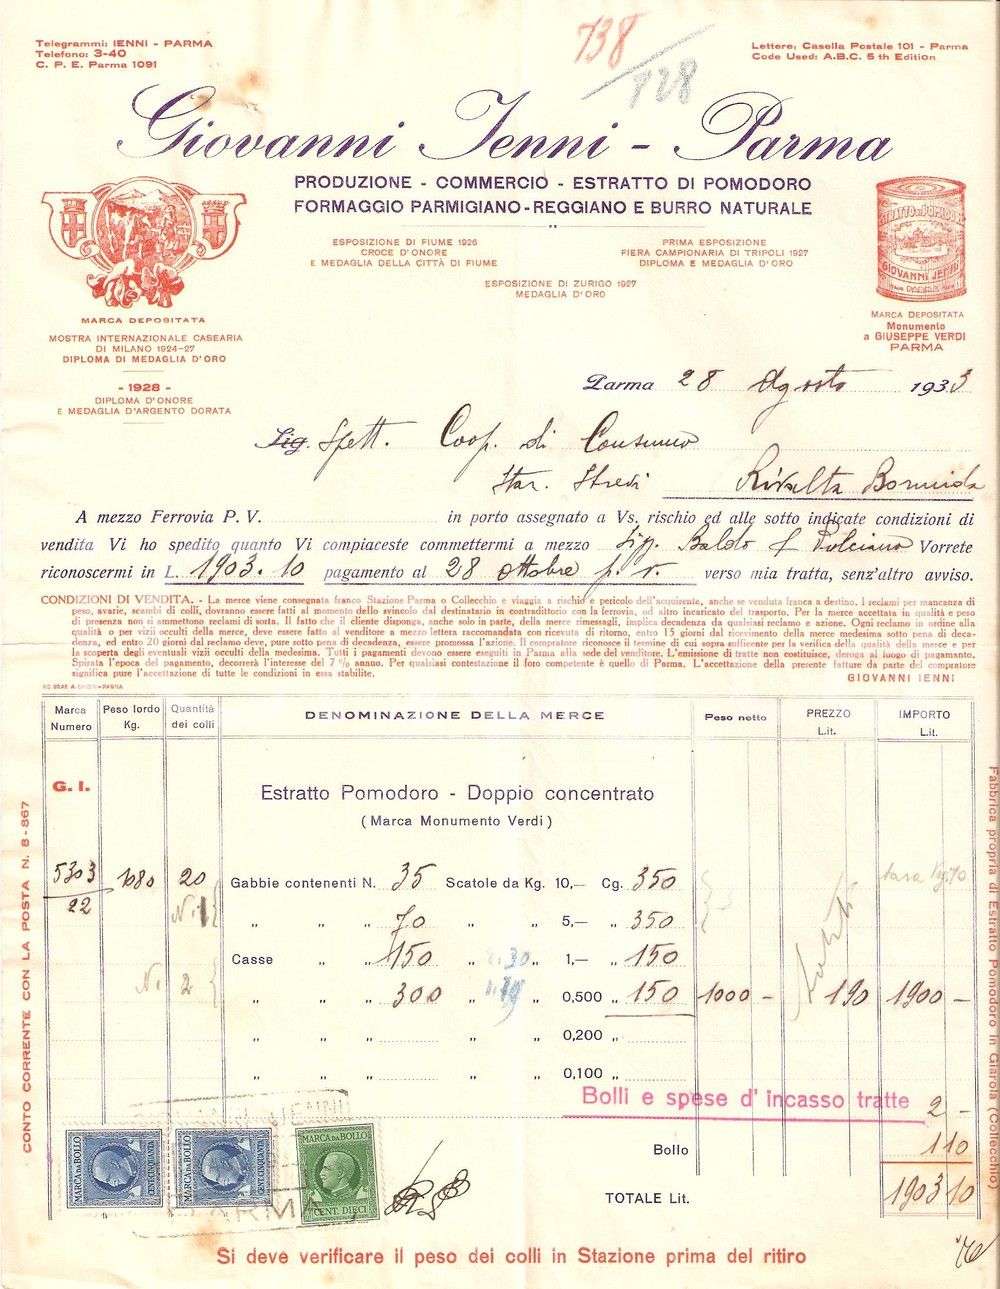 Telegrammi: IENNI - PARMA
Telefono: 3-40
C. P. E. Parma 1091
738
928
Lettere: Casella Postale 101 - Parma
Code Used: A.B.C. 5 th Edition
Giovanni Ienni - Parma
PRODUZIONE - COMMERCIO - ESTRATTO DI POMODORO
FORMAGGIO PARMIGIANO-REGGIANO E BURRO NATURALE
ESPOSIZIONE DI FIUME 1926
CROCE D'ONORE
E MEDAGLIA DELLA CITTÀ DI FIUME
PRIMA ESPOSIZIONE
FIERA CAMPIONARIA DI TRIPOLI 1927
DIPLOMA E MEDAGLIA D'ORO
ESPOSIZIONE DI ZURIGO 1927
MEDAGLIA D'ORO
MARCA DEPOSITATA
MOSTRA INTERNAZIONALE CASEARIA
DI MILANO 1924-27
DIPLOMA DI MEDAGLIA D'ORO
- 1928 -
DIPLOMA D'ONORE
E MEDAGLIA D'ARGENTO DORATA
ESTRATTO DI POMIDORO
GIOVANNI IENNI
PARMA
MARCA DEPOSITATA
Monumento
a GIUSEPPE VERDI
PARMA
Parma 28 Agosto 1933
Sig. Spett. Coop. di Consumo
Rivalta Bormida
A mezzo Ferrovia P. V. in porto assegnato a Vs. rischio ed alle sotto indicate condizioni di
vendita Vi ho spedito quanto Vi compiaceste commettermi a mezzo Sig. Baldo & Pulciano Vorrete
riconoscermi in L. 1903.10 pagamento al 28 ottobre p. v. verso mia tratta, senz'altro avviso.
CONDIZIONI DI VENDITA. - La merce viene consegnata franco Stazione Parma o Collecchio e viaggia a rischio e pericolo dell'acquirente, anche se venduta franca a destino. I reclami per mancanza di
peso, avarie, scambi di colli, dovranno essere fatti al momento dello svincolo dal destinatario in contradditorio con la ferrovia, od altro incaricato del trasporto. Per la merce accettata in qualità e peso
di presenza non si ammettono reclami di sorta. Il fatto che il cliente disponga, anche solo in parte, della merce rimessagli, implica decadenza da qualsiasi reclamo e azione. Ogni reclamo in ordine alla
qualità o per vizii occulti della merce, deve essere fatto al venditore a mezzo lettera raccomandata con ricevuta di ritorno, entro 15 giorni dal ricevimento della merce medesima sotto pena di deca-
denza, ed entro 20 giorni dal reclamo deve, pure sotto pena di decadenza, essere promossa l'azione. Il compratore riconosce il termine di cui sopra sufficente per la verifica della qualità della merce e per
la scoperta degli eventuali vizii occulti della medesima. Tutti i pagamenti devono essere eseguiti in Parma alla sede del venditore. L'emissione di tratte non costituisce, deroga al luogo di pagamento.
Spirata l'epoca del pagamento, decorrerà l'interesse del 7 % annuo. Per qualsiasi contestazione il foro competente è quello di Parma. L'accettazione della presente fatture da parte del compratore
significa pure l'accettazione di tutte le condizioni in essa stabilite.
GIOVANNI IENNI
Marca
Numero
Peso lordo
Kg.
Quantità
dei colli
DENOMINAZIONE DELLA MERCE
Peso netto
PREZZO
L.it.
IMPORTO
L.it.
G. I.
Estratto Pomodoro - Doppio concentrato
(Marca Monumento Verdi)
5303 1080 20 Gabbie contenenti N. 35 Scatole da Kg. 10,— Cg. 350 tara Kg. 70
22 N. 1 „ „ „ 70 „ „ 5,— „ 350
Casse „ „ 150 „ „ 1,— „ 150
N. 2 „ „ „ 300 „ „ 0,500 „ 150 1000 - 190 1900 -
„ „ „ „ „ 0,200 „
„ „ „ „ „ 0,100 „
Bolli e spese d'incasso tratte 2 -
Bollo 1 10
TOTALE Lit. 1903 10
MARCA DA BOLLO
CENT. CINQUANTA
MARCA DA BOLLO
CENT. CINQUANTA
MARCA DA BOLLO
CENT. DIECI
PARMA
Si deve verificare il peso dei colli in Stazione prima del ritiro
CONTO CORRENTE CON LA POSTA N. 8-867
Fabbrica propria di Estratto Pomodoro in Giarola (Collecchio)